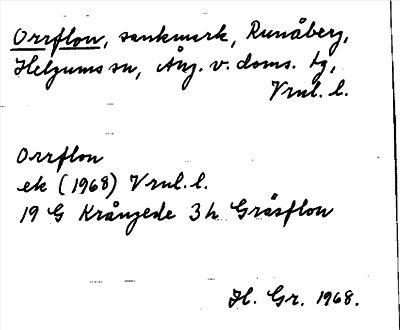 Orrflon, sankmark, Runåberg,
Helgums sn, Ång. v. doms. tg,
Vrnl. l.
Orrflon
ek (1968) Vrnl. l.
19 G Krångede 3h Gräsflon
H. Gr. 1968.